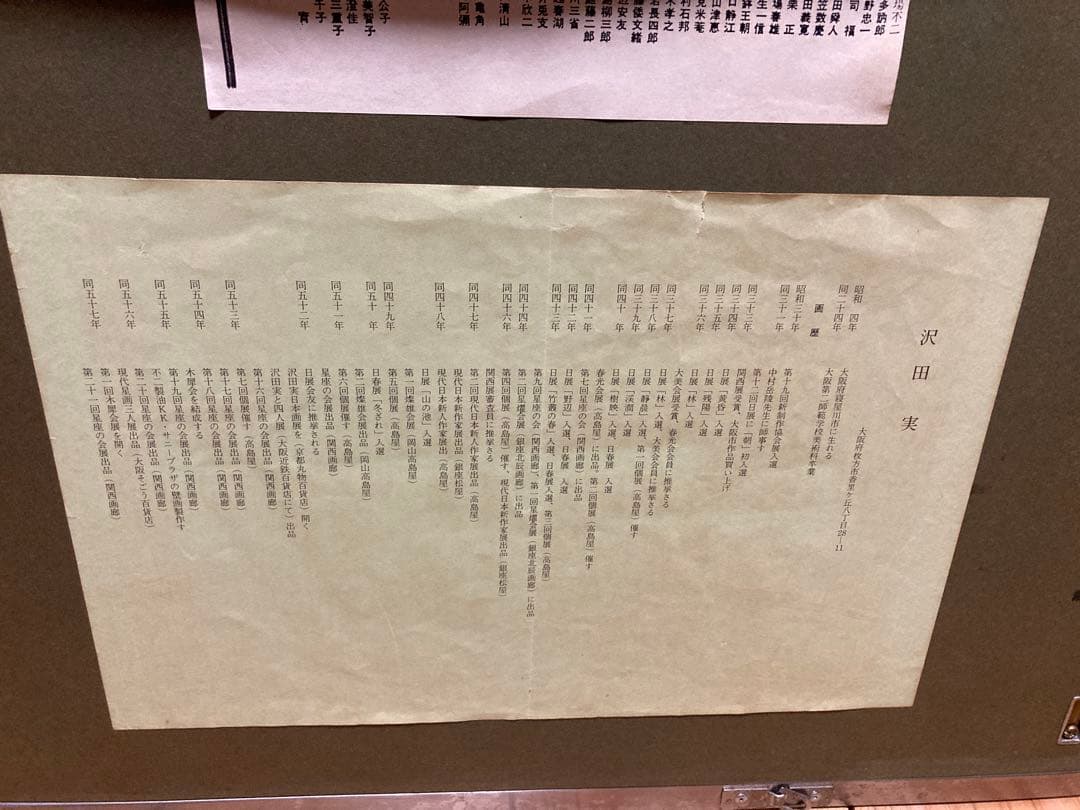 場不二
多訥郎
野忠一
司 福
田舜人
笠数慶
田義寛
栗 正
場春雄
生一信
口静江
山津恵
見米菴
利石邦
木孝之
名長四郎
藤倭文緒
辺安友
柳三郎
藤二郎
三省
欣二
清山
亀角
阿彌
公子
美智子
三重子
澄佳
千子
齊
沢田 実
大阪府枚方市香里ヶ丘八丁目28―11
昭和 四年 大阪府寝屋川市に生れる
同二十四年 大阪第二師範学校美術科卒業
画歴
昭和三十年 第十九回新制作協会展入選
同三十一年 中村岳陵先生に師事す
第十二回日展に「朝」初入選
関西展受賞、大阪市作品買い上げ
同三十三年 日展「黄昏」入選
同三十四年 日展「残陽」入選
同三十五年 日展「林」入選
同三十六年 大美会展受賞、春光会会員に推挙さる
同三十七年 日展「林」入選、大美会会員に推挙さる
同三十八年 日展「静晨」入選、第一回個展(高島屋)催す
同三十九年 日展「渓澗」入選
同四十 年 日展「樹映」入選、日春展 入選
春光会展(高島屋)に出品。第二回個展(高島屋)催す
同四十一年 第七回星座の会(関西画廊)に出品
同四十二年 日展「野辺」入選、日春展 入選
同四十三年 日展「竹叢の春」入選、日春展入選、第三回個展(高島屋)
同四十四年 第九回星座の会(関西画廊)、第一回星燿会展(銀座北辰画廊)に出品
第二回星燿会展(銀座北辰画廊)に出品
同四十六年 第四回個展(高島屋)催す、現代日本新作家展出品(銀座松屋)
関西展審査員に推挙さる
同四十七年 第二回現代日本新人作家展出品(高島屋)
現代日本新作家展出品(銀座松屋)
同四十八年 現代日本新人作家展出(高島屋)
日展「山の池」入選
第一回燦雄会展(岡山高島屋)
同四十九年 第五回個展(高島屋)
同五十 年 日春展「冬ざれ」入選
第二回燦雄会展(岡山高島屋)
同五十一年 第六回個展催す(高島屋)
星座の会展出品(関西画廊)
同五十二年 日展会友に推挙される
沢田実日本画展を(京都丸物百貨店)開く
沢田実と四人展(大阪近鉄百貨店にて)出品
第十六回星座の会展出品(関西画廊)
同五十三年 第七回個展催す(高島屋)
第十七回星座の会展出品(関西画廊)
第十八回星座の会展出品(関西画廊)
同五十四年 木犀会を結成する
第十九回星座の会展出品(関西画廊)
同五十五年 不二製油KK・サニープラザの壁画製作す
第二十回星座の会展出品(関西画廊)
同五十六年 現代星画三人展出品(大阪そごう百貨店)
第一回木犀会展を開く
同五十七年 第二十一回星座の会展出品(関西画廊)